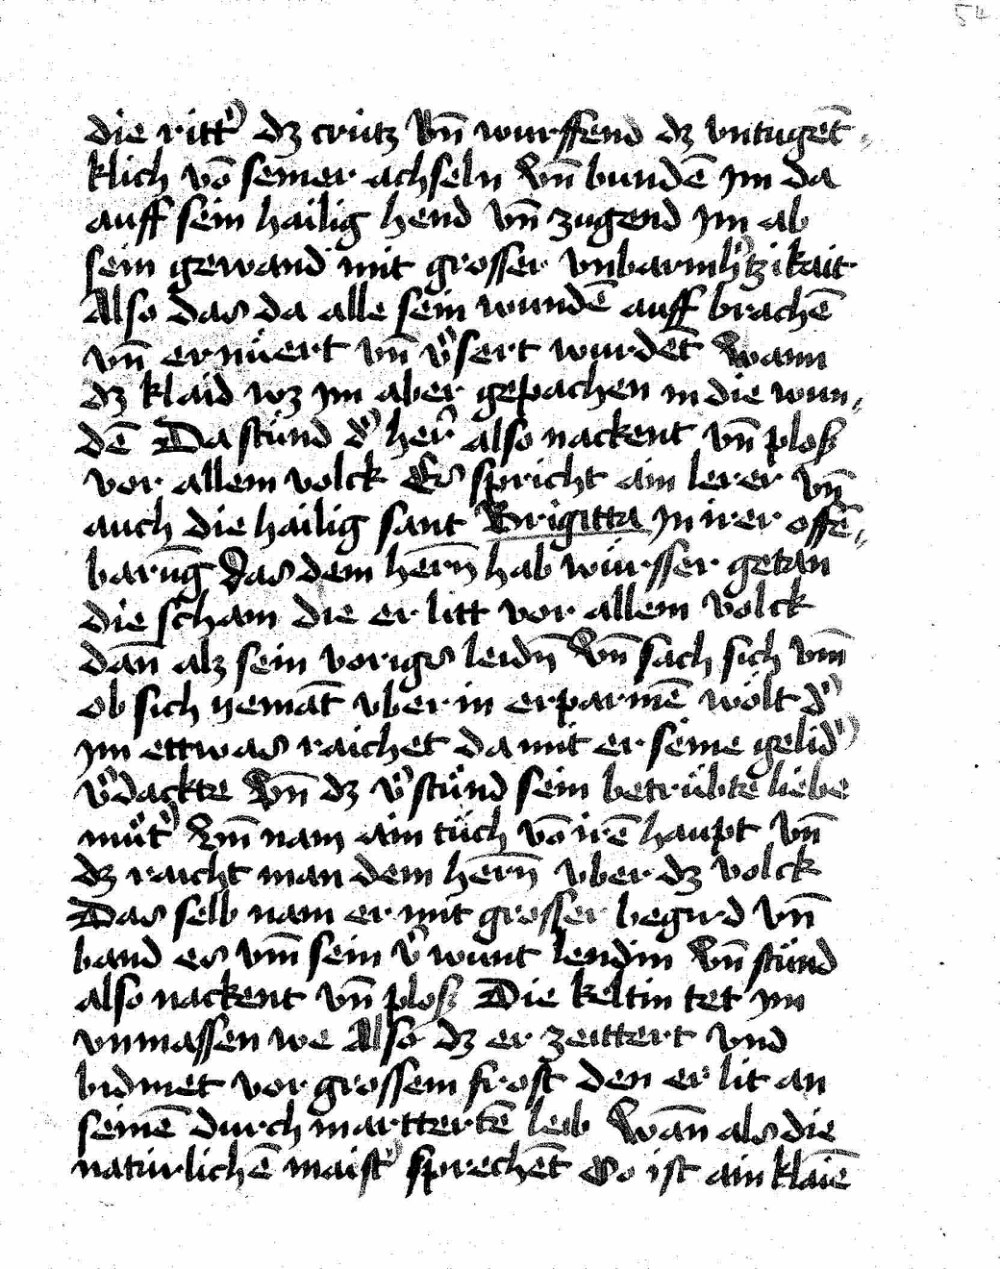 54
die ritt͛ dz crütz Vn̄ wurffend dz vntuget̄=
klich vō seiner achseln Vn̄ bundē Im da
auff sein hailig hend vn̄ zugend Im ab
sein gewand mit grosser vnbarmh͛tzikait
Also das da alle sein wundē auff brachē
vn̄ ernüert vn̄ v͛sert wurdēt Wann
dz klaid wz Im aber gepachen in die wun=
dē Da stůnd d͛ her̄ also nackent vn̄ ploß
vor allem volck Es spricht ain lerer vn̄
auch die hailig sant Brigitta In irer offē=
barūg Das dem hern̄ hab würsser getan
die scham die er litt vor allem volck
dan̄ alz sein voriges leidn̄ Vn̄ sach sich vm̄
ob sich yemāt vber in erparmē wölt d͛
Im ettwas raichet da mit er seine gelid͛
v͛dackte Vn̄ dz v͛stůnd sein betrübte liebe
můt͛ Vn̄ nam ain tůch vō irē haupt vn̄
dz raicht man dem hern̄ vber dz volck
Das selb nam er mit grosser begird vn̄
band es vm̄ sein v͛wunt lendin Vn̄ stůnd
also nackent vn̄ ploß Die keltin tet Im
vnmassen we Also dz er zeittert vnd
bidmet vor grossem frost den er lit an
seinē durchmartterten̄ leib Wan̄ als die
natürlichē maist͛ sprechēt So ist ain klaiē